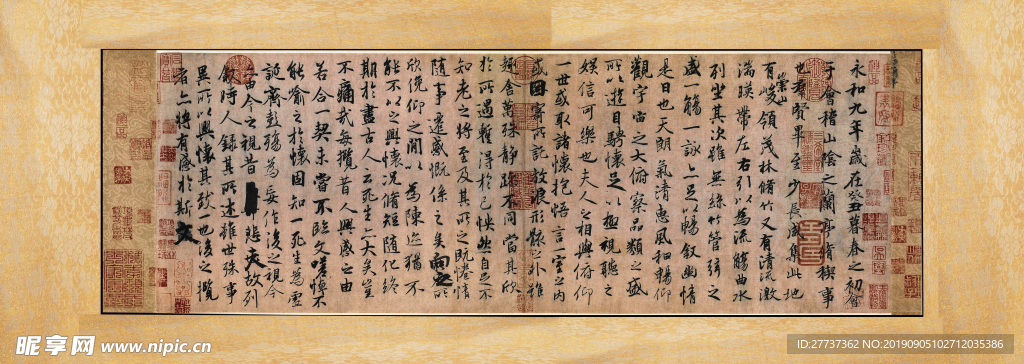 永和九年歲在癸丑暮春之初會
于會稽山陰之蘭亭脩稧事
也羣賢畢至少長咸集此地
有崇山峻領茂林脩竹又有清流激
湍暎帶左右引以為流觴曲水
列坐其次雖無絲竹管弦之
盛一觴一詠亦足以暢敘幽情
是日也天朗氣清惠風和暢仰
觀宇宙之大俯察品類之盛
所以遊目騁懷足以極視聽之
娛信可樂也夫人之相與俯仰
一世或取諸懷抱悟言一室之內
或因寄所託放浪形骸之外雖
趣舍萬殊靜躁不同當其欣
於所遇蹔得於己怏然自足不
知老之將至及其所之既惓情
隨事遷感慨係之矣向之所
欣俛仰之閒以為陳迹猶不
能不以之興懷況脩短隨化終
期於盡古人云死生亦大矣豈
不痛哉每攬昔人興感之由
若合一契未嘗不臨文嗟悼不
能喻之於懷固知一死生為虛
誕齊彭殤為妄作後之視今
亦由今之視昔悲夫故列
敘時人錄其所述雖世殊事
異所以興懷其致一也後之攬
者亦將有感於斯文
昵享网 www.nipic.cn
ID:27737362 NO:20190905102712035386